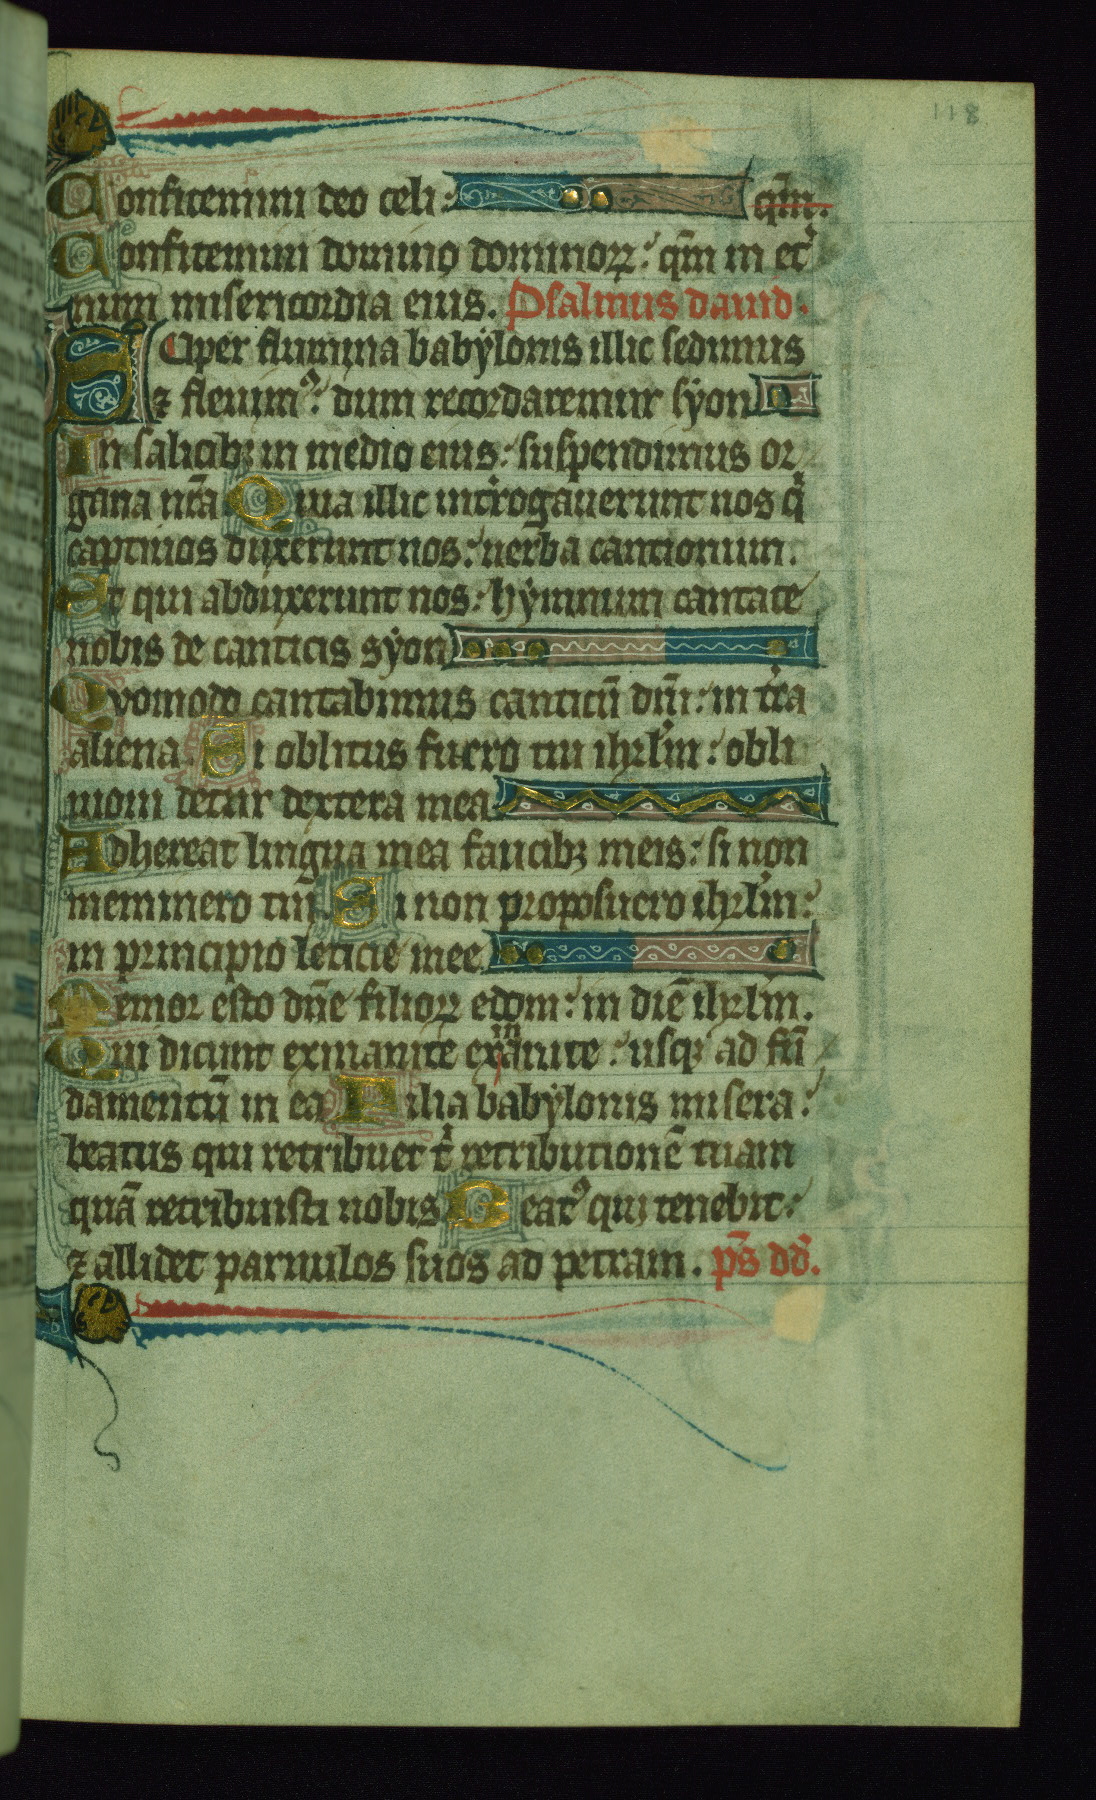 118
Confitemini deo celi: qm̄.
Confitemini domino dominoꝝ: qm̄ in et̾
num misericordia eius. Psalmus dauid.
SUper flumina babẏlonis illic sedimus
⁊ fleuimꝰ: dum recordaremur sẏon
In salicibꝫ in medio eius: suspendimus or
gana nr̄a Quia illic int̾rogauerunt nos q̇
captiuos duxerunt nos: uerba cantionum.
Et qui abduxerunt nos: hẏmnum cantate
nobis de canticis sẏon
Quomodo cantabimus canticū dn̄i: in t̾ra
aliena. Si oblitus fuero tui ihrl̄m: obli
uioni detur dextera mea
Adhereat lingua mea faucibꝫ meis: si non
meminero tui. Si non proposuero ihrl̄m:
in principio leticie mee.
Memor esto dn̄e filioꝝ edom: in diē ihrl̄m.
Qui dicunt exinanite exinanite: usqꝫ ad fū
damentū in ea Filia babẏlonis misera:
beatus qui retribuet t̉ retributionē tuam
quā retribuisti nobis Beatꝰ qui tenebit:
⁊ allidet paruulos suos ad petram. ps̄ dd̄.